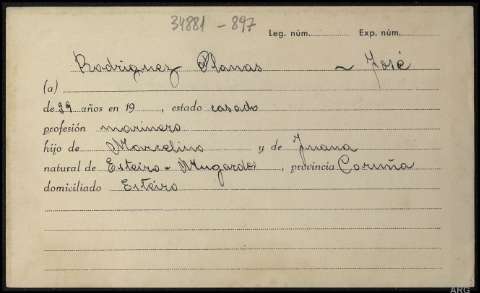 34881 - 897
Leg. núm. Exp. núm.
Rodriguez Planas ~ José
(a)
de 39 años en 19 , estado casado
profesión marinero
hijo de Marcelino y de Juana
natural de Esteiro - Mugardos , provincia Coruña
domiciliado Esteiro
ARG